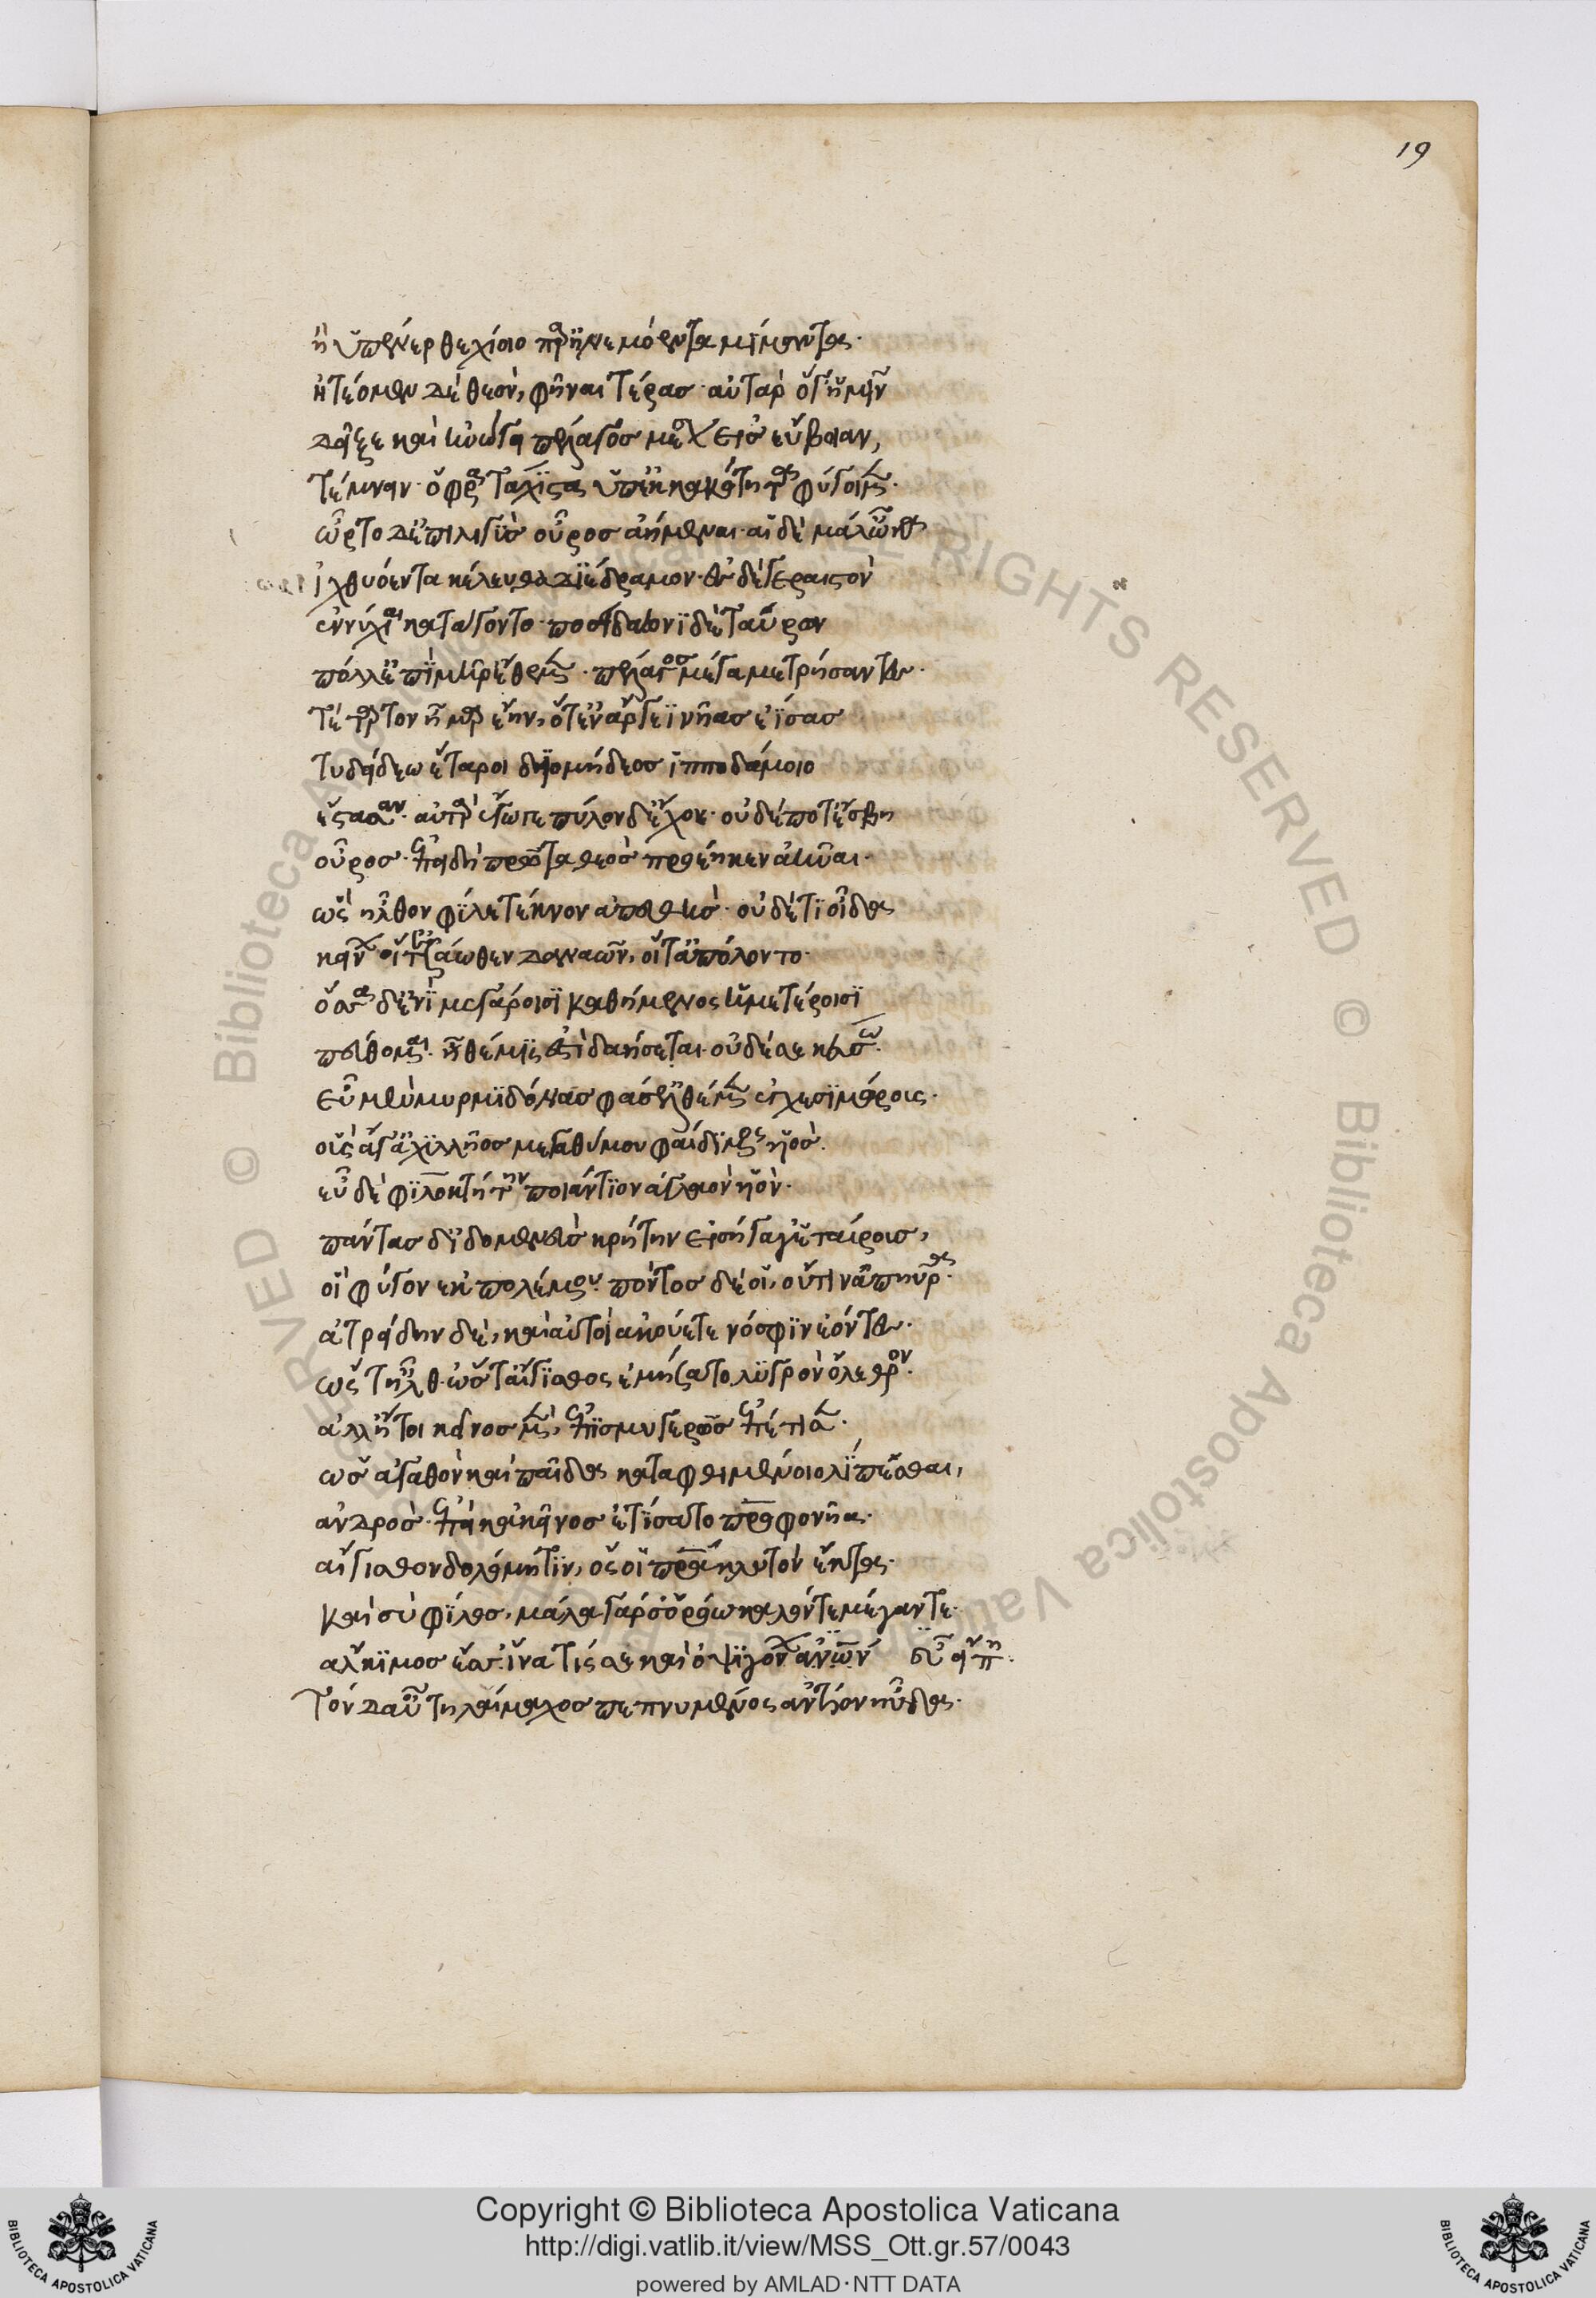 19
ἢ ὑπένερθε χίοιο παρ' ἠνεμόεντα μίμαντα·
ᾐτέομεν δὲ θεὸν, φῆναι τέρας· αὐτὰρ ὅγ' ἥμιν
δεῖξε καὶ ἠνώγει πέλαγος μέσον εἰς εὔβοιαν,
τέμνειν· ὄφρα τάχιστα ὑπὲκ κακότητα φύγοιμεν·
ὦρτο δ' ἐπὶ λιγὺς οὖρος ἀήμεναι· αἱ δὲ μάλ' ὦκα
ἰχθυόεντα κέλευθα διέδραμον· ἐς δὲ γεραιστὸν
ἐννύχιαι κατάγοντο· ποσειδάωνι δὲ ταύρων
πόλλ' ἐπὶ μῆρ' ἔθεμεν· πέλαγος μέγα μετρήσαντες·
τέτρατον ἦμαρ ἔην, ὅτ' ἐν ἄργεϊ νῆας ἐΐσας
τυδείδεω ἕταροι διομήδεος ἱπποδάμοιο
ἔστασαν· αὐτὰρ ἔγωγε πύλονδ' ἔχον· οὐδέ ποτ' ἔσβη
οὖρος· ἐπειδὴ πρῶτα θεὸς προέηκεν ἀῆναι·
ὣς ἦλθον φίλε τέκνον ἀπευθὴς· οὐδέ τι οἶδα
κείνων οἵ τ' ἐξαάωθεν δαναῶν, οἵ τ' ἀπόλοντο·
ὅσσα δ' ἐνὶ μεγάροισι καθήμενος ἡμετέροισι
πεύθομαι· ἣ θέμις ἐστὶ δαήσεται· οὐδέ σε κεύσω·
εὖ μὲν μυρμιδόνας φάσ' ἐλθέμεν ἐγχεσιμώρους·
οὓς ἄγ' ἀχιλλῆος μεγαθύμου φαίδιμος υἱὸς·
εὖ δὲ φιλοκτήτην ποιάντιον ἀγλαὸν υἱὸν·
πάντας δ' ἰδομενεὺς κρήτην εἰσήγαγ' ἑταίρους,
οἳ φύγον ἐκ πολέμου· πόντος δέ οἱ, οὔτιν' ἀπηύρα·
ἀτρείδην δὲ, καὶ αὐτοὶ ἀκούετε νόσφιν ἐόντες·
ὥς τ' ἦλθ' ὥς τ' αἴγισθος ἐμήσατο λυγρὸν ὄλεθρον·
ἀλλ' ἤτοι κεῖνος μὲν, ἐπισμυγερῶς ἐπέτισεν·
ὡς ἀγαθὸν καὶ παῖδα καταφθιμένοιο λιπέσθαι,
ἀνδρὸς· ἐπεὶ καὶ κεῖνος ἐτίσατο πατροφονῆα·
αἴγισθον δολόμητιν, ὅς οἱ πατέρα κλυτὸν ἔκτα·
καὶ σὺ φίλος, μάλα γάρ σ' ὁρόω καλόν τε μέγαν τε·
ἄλκιμος ἔσσ'· ἵνα τίς σε καὶ ὀψιγόνων ἀνων εὖ εἴπη·
τὸν δ' αὖ τηλέμαχος πεπνυμένος ἀντίον ηὔδα·
Copyright © Biblioteca Apostolica Vaticana
http://digi.vatlib.it/view/MSS_Ott.gr.57/0043
powered by AMLAD·NTT DATA